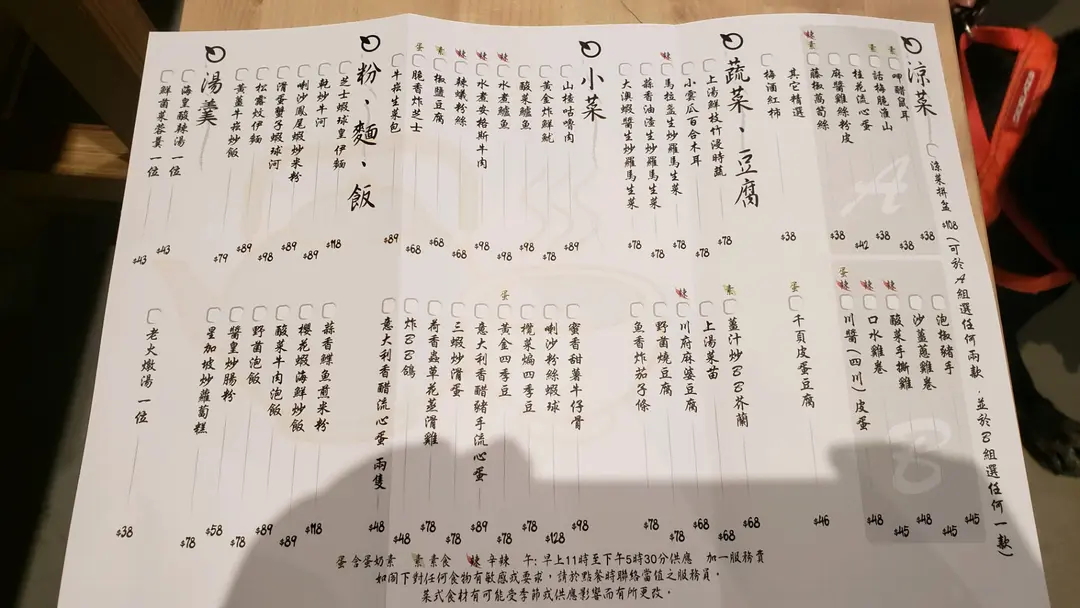 涼菜
涼菜拼盆 $108 (可於A組選任何兩款,並於B組選任何一款)
A
呷醋鼠耳 $38
素 話梅脆淮山 $38
素 桂花流心蛋 $38
麻醬雞絲粉皮 $42
辣 素 藤椒萵筍絲 $38
其它精選
梅酒紅柿 $38
B
泡椒豬手 $45
沙薑蔥雞卷 $48
辣 酸菜手撕雞 $48
辣 口水雞卷 $45
蛋 辣 川醬(四川)皮蛋 $48
蛋 千頁皮蛋豆腐 $46
蔬菜、豆腐
上湯鮮枝竹浸時蔬 $78
小雲瓜百合木耳 $78
辣 馬拉盞生炒羅馬生菜 $78
蒜香油渣生炒羅馬生菜 $78
大澳蝦醬生炒羅馬生菜 $78
素 薑汁炒BB芥蘭 $68
上湯菜苗 $68
辣 川府麻婆豆腐 $68
野菌燒豆腐 $68
魚香炸茄子條 $78
小菜
山楂咕嚕肉 $89
黃金炸鮮魷 $78
酸菜鱸魚 $98
辣 水煮鱸魚 $98
辣 水煮安格斯牛肉 $98
辣 辣蟻粉絲 $68
素 椒鹽豆腐 $68
蛋 脆香炸芝士 $68
牛崧生菜包 $89
蜜香甜薯牛仔骨 $98
喇沙粉絲蝦球 $128
欖菜煸四季豆 $78
蛋 黃金四季豆 $78
意大利香醋豬手流心蛋 $89
三蝦炒滑蛋 $78
荷香蟲草花蒸滑雞 $78
炸BB鴿 $48
意大利香醋流心蛋 兩隻 $48
粉、麵、飯
芝士蝦球皇伊麵 $118
乾炒牛河 $89
喇沙鳳尾蝦炒米粉 $89
滑蛋蟹子蝦球河 $98
松露炆伊麵 $89
黃薑牛崧炒飯 $79
蒜香鰈魚煎米粉 $118
櫻花蝦海鮮炒飯 $89
酸菜牛肉泡飯 $89
野菌泡飯 $78
醬皇炒腸粉 $58
星加坡炒蘿蔔糕 $78
湯羹
海皇酸辣湯 一位 $43
鮮菌菜蓉羹 一位 $43
老火燉湯 一位 $38
蛋 含蛋奶素 素 素食 辣 辛辣 午: 早上11時至下午5時30分供應 加一服務費
如閣下對任何食物有敏感或要求,請於點餐時聯絡當值之服務員。
菜式食材有可能受季節或供應影響而有所更改。